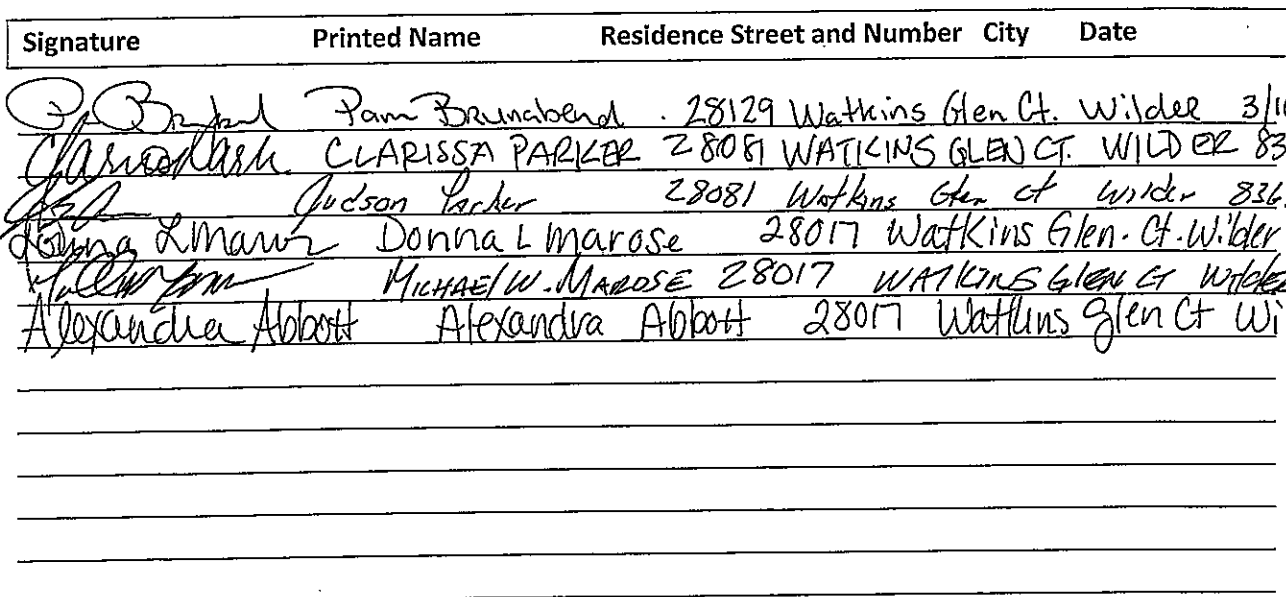 Signature Printed Name Residence Street and Number City Date
Pam Brunabend . 28129 Watkins Glen Ct. Wilder 3/1
CLARISSA PARKER 28081 WATKINS GLEN CT. WILDER 83
Judson Parker 28081 Watkins Glen Ct Wilder 836
Donna L Marose Donna L Marose 28017 Watkins Glen. Ct. Wilder
MICHAEl W. MAROSE 28017 WATKINS GlEN CT Wilder
Alexandra Abbott Alexandra Abbott 28017 Watkins Glen Ct Wi